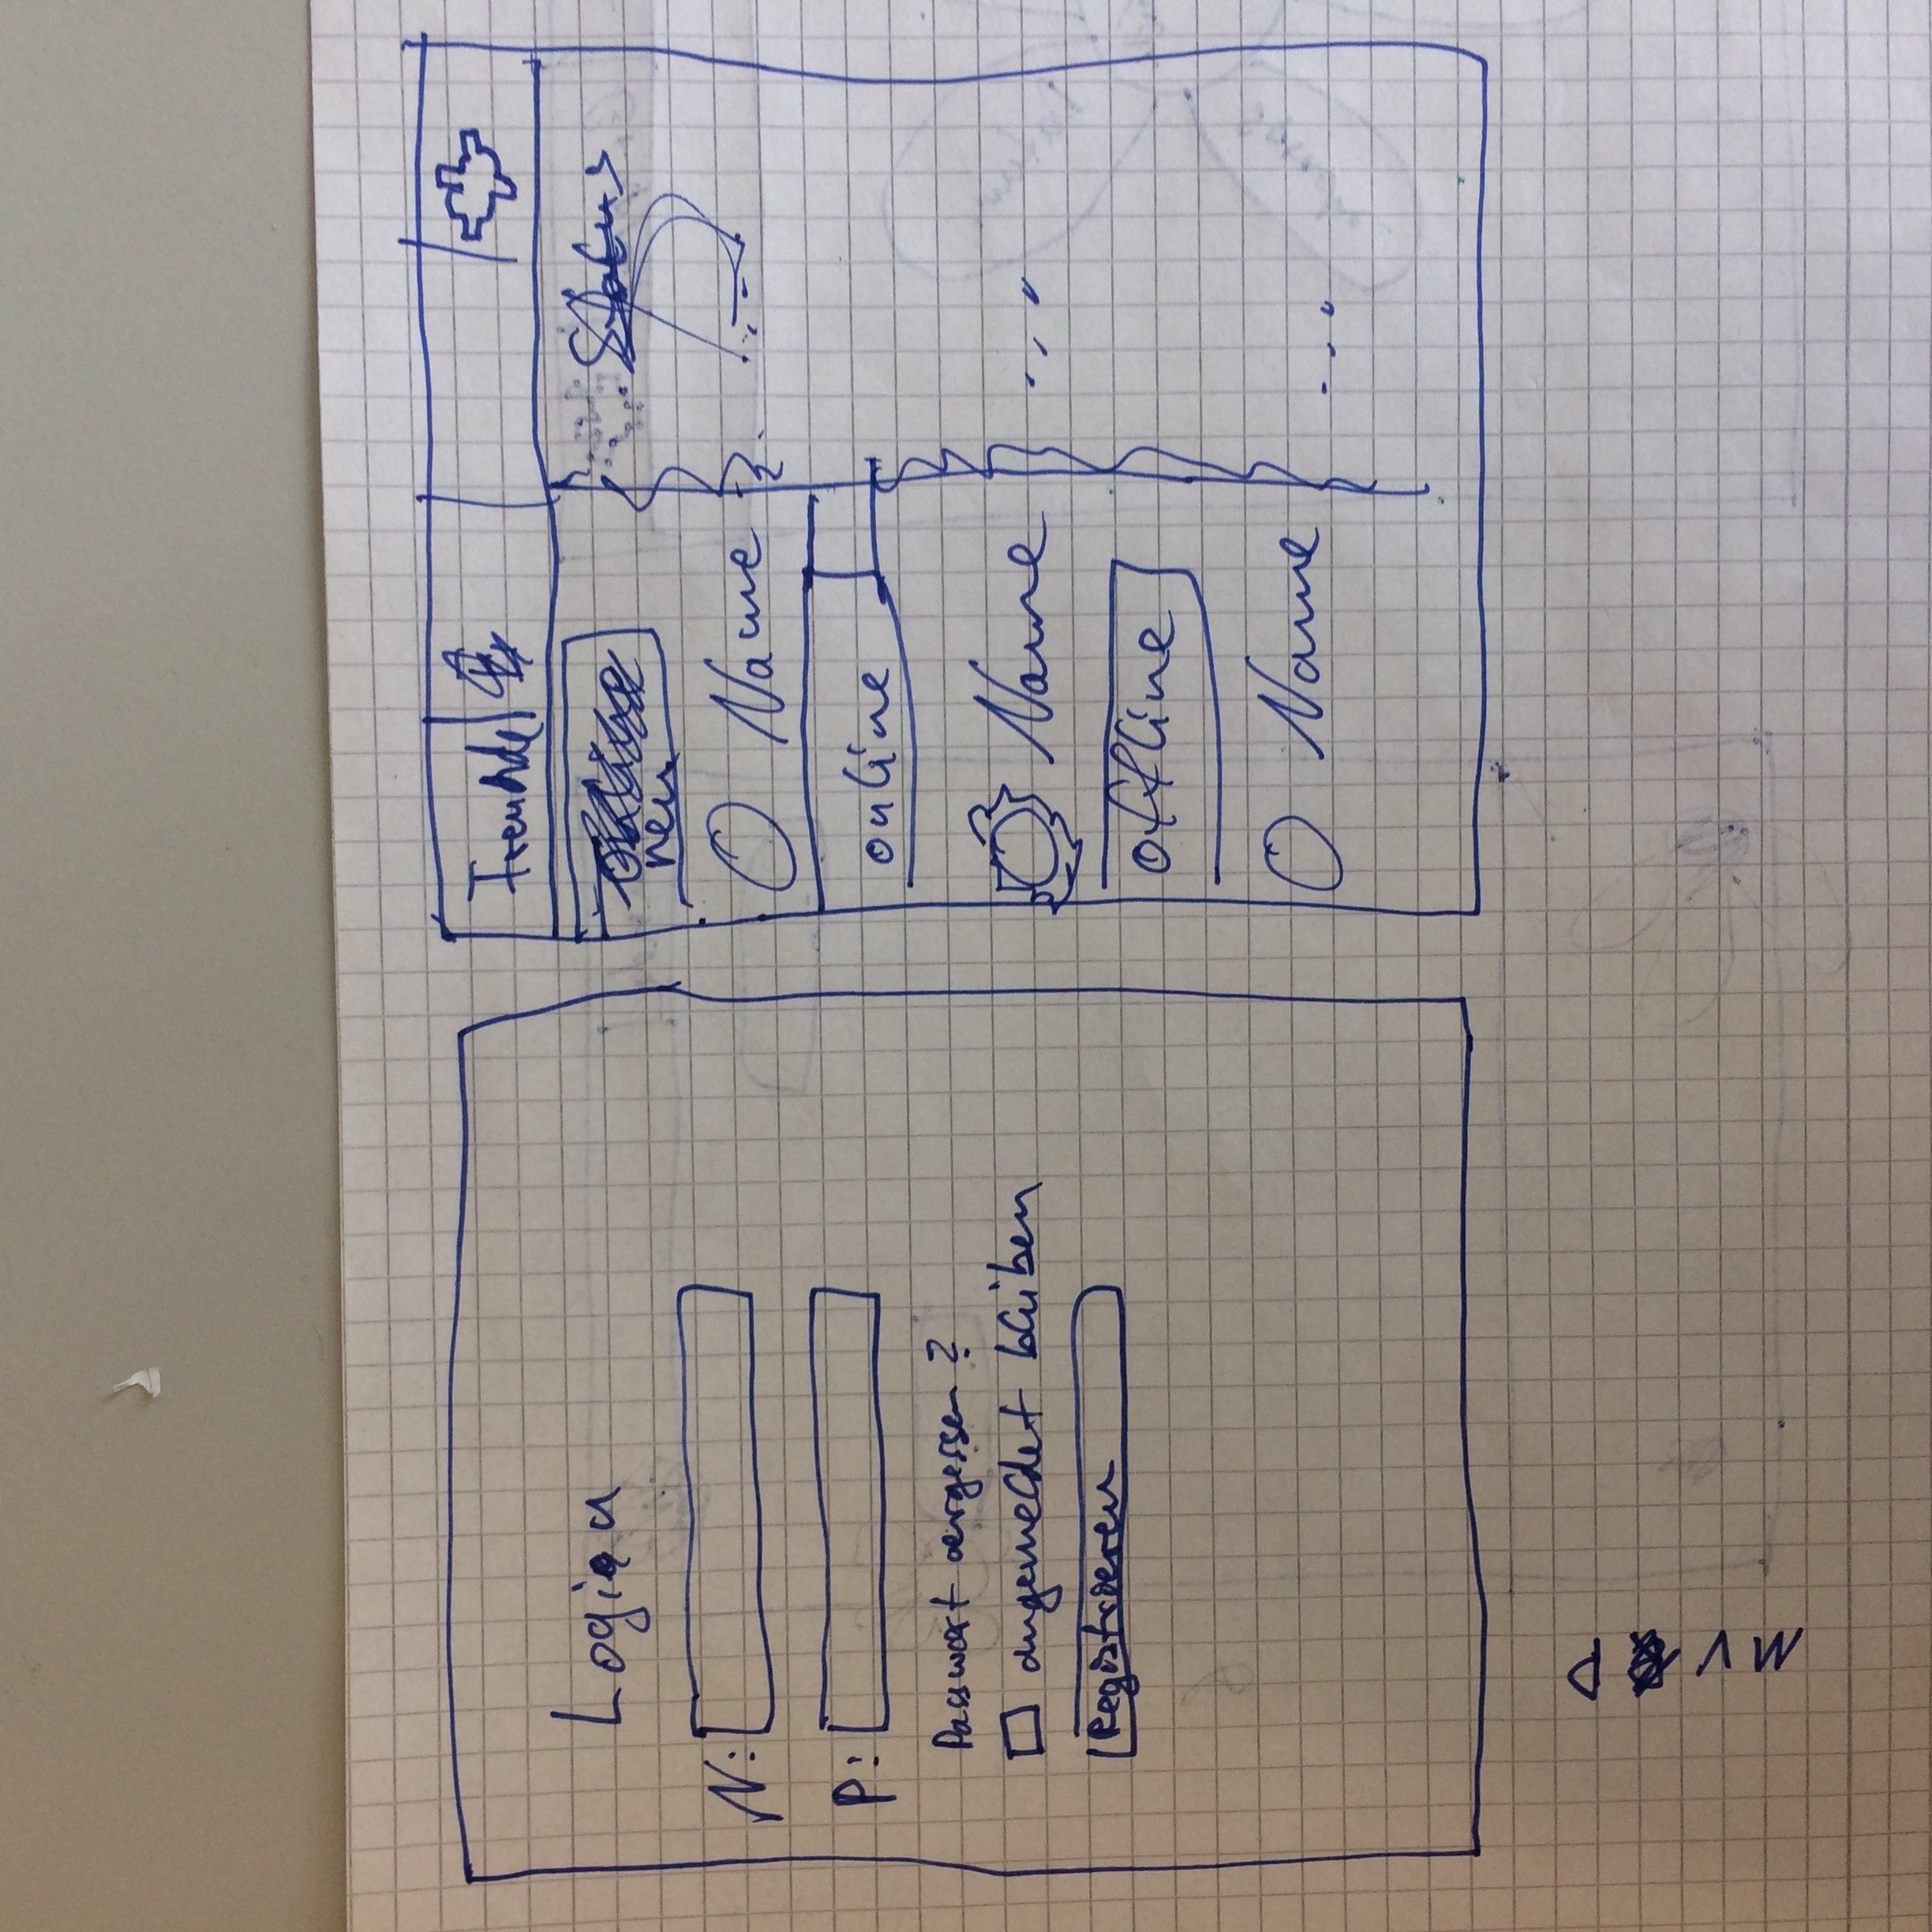 Login
N:
P:
Passwort vergessen?
angemeldet bleiben
Registrieren
Freunde
neu
Name
online
Name
offline
Name
Status
...
...
...
MVP